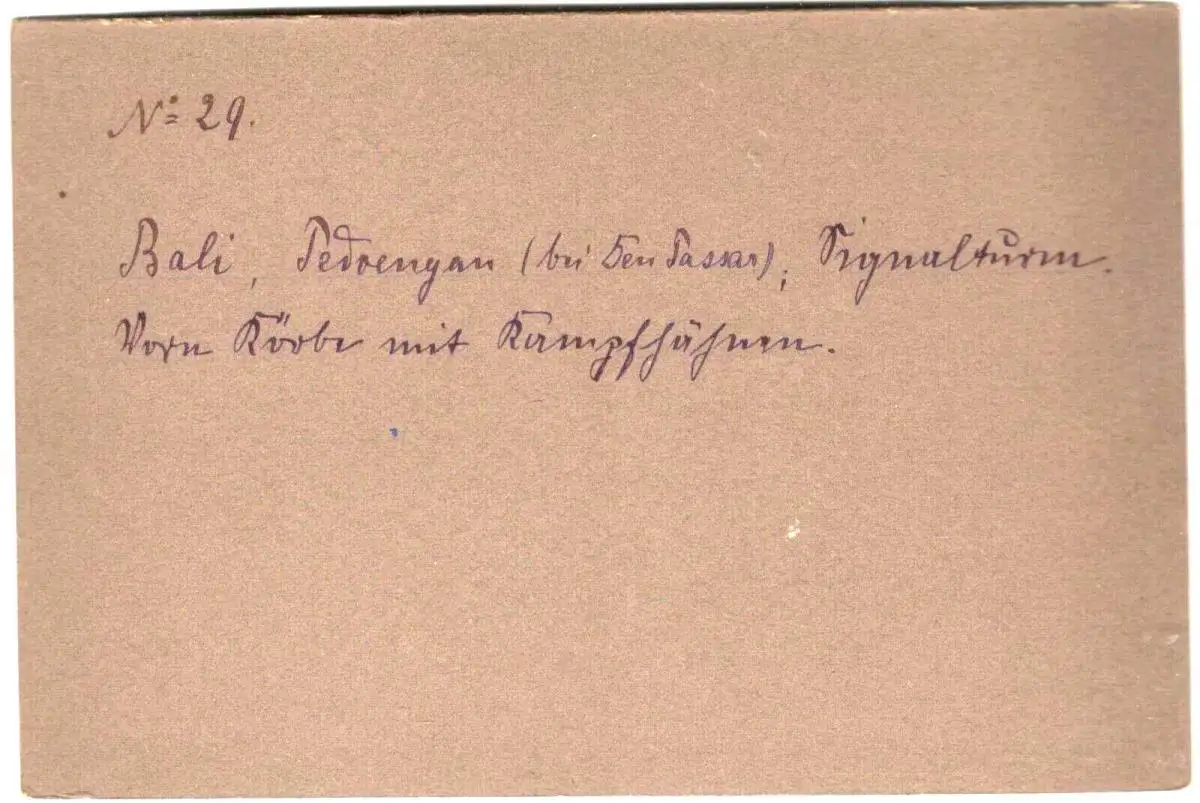 No 29.
Bali, Pedoengan (bei Den Passar), Signalturm.
Vorn Körbe mit Kampfhähnen.